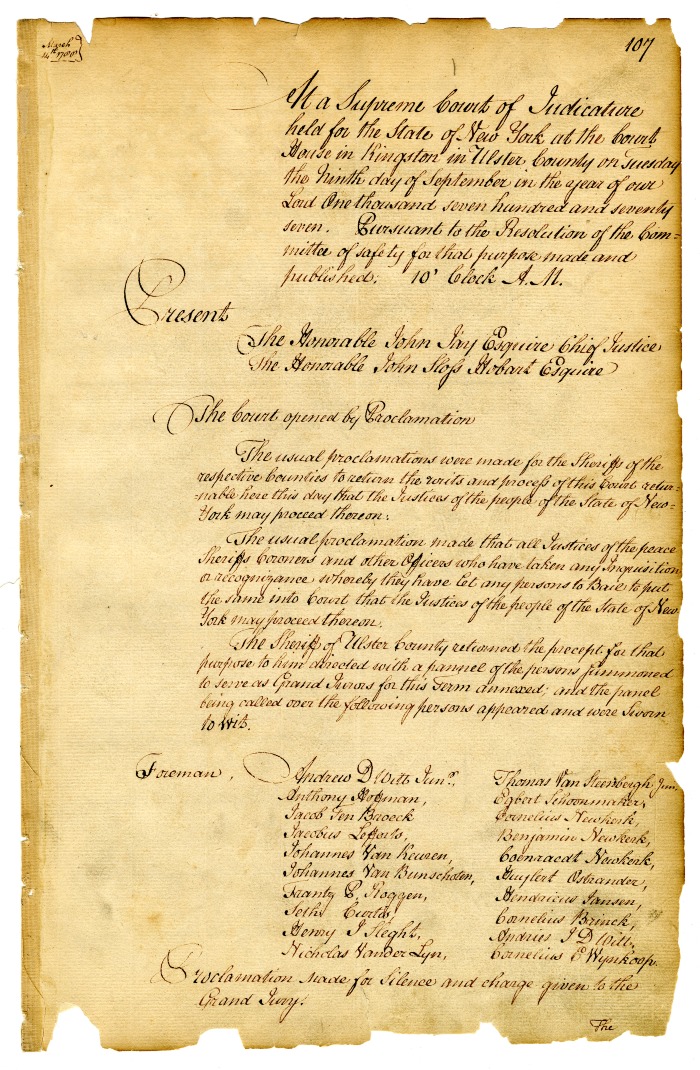 March
14th 1788
107
At a Supreme Court of Judicature
held for the State of New York at the Court
House in Kingston in Ulster County on Tuesday
the Ninth day of September in the year of our
Lord One thousand seven hundred and seventy
seven. Pursuant to the Resolution of the Com=
mittee of safety for that purpose made and
published; 10' Clock A.M.
Present
The Honorable John Jay Esquire Chief Justice
The Honorable John Sloss Hobart Esquire
The Court opened by Proclamation
The usual proclamations were made for the Sheriffs of the
respective Counties to return the writs and process of this Court retur=
=nable here this day that the Justices of the people of the State of New=
York may proceed thereon.
The usual proclamation made that all Justices of the peace
Sheriffs Coroners and other Officers who have taken any Inquisition
or recognizance whereby they have let any persons to Bail to put
the same into Court that the Justices of the people of the State of New
York may proceed thereon.
The Sheriff of Ulster County returned the precept for that
purpose to him directed with a pannel of the persons summoned
to serve as Grand Jurors for this Term annexed; and the panel
being called over the following persons appeared and were Sworn
to Wit.
Foreman, Andrew D Witt Junr., Thomas Van Steenbergh Jun,
Anthony Hoffman, Egbert Schoonmaker,
Jacob Ten Broeck Cornelius Newkerk,
Jacobus Lefferts, Benjamin Newkerk,
Johannes Van Keuren, Coenraedt Newkerk,
Johannes Van Bunschoten, Huylert Ostrander,
Frantz P. Roggen, Hendricus Jansen,
Seth Curtis, Cornelius Brinck,
Henry J Sleght, Andries J D Witt,
Nicholas Vander Lyn, Cornelius E Wynkoop.
Proclamation made for Silence and charge given to the
Grand Jury.
The